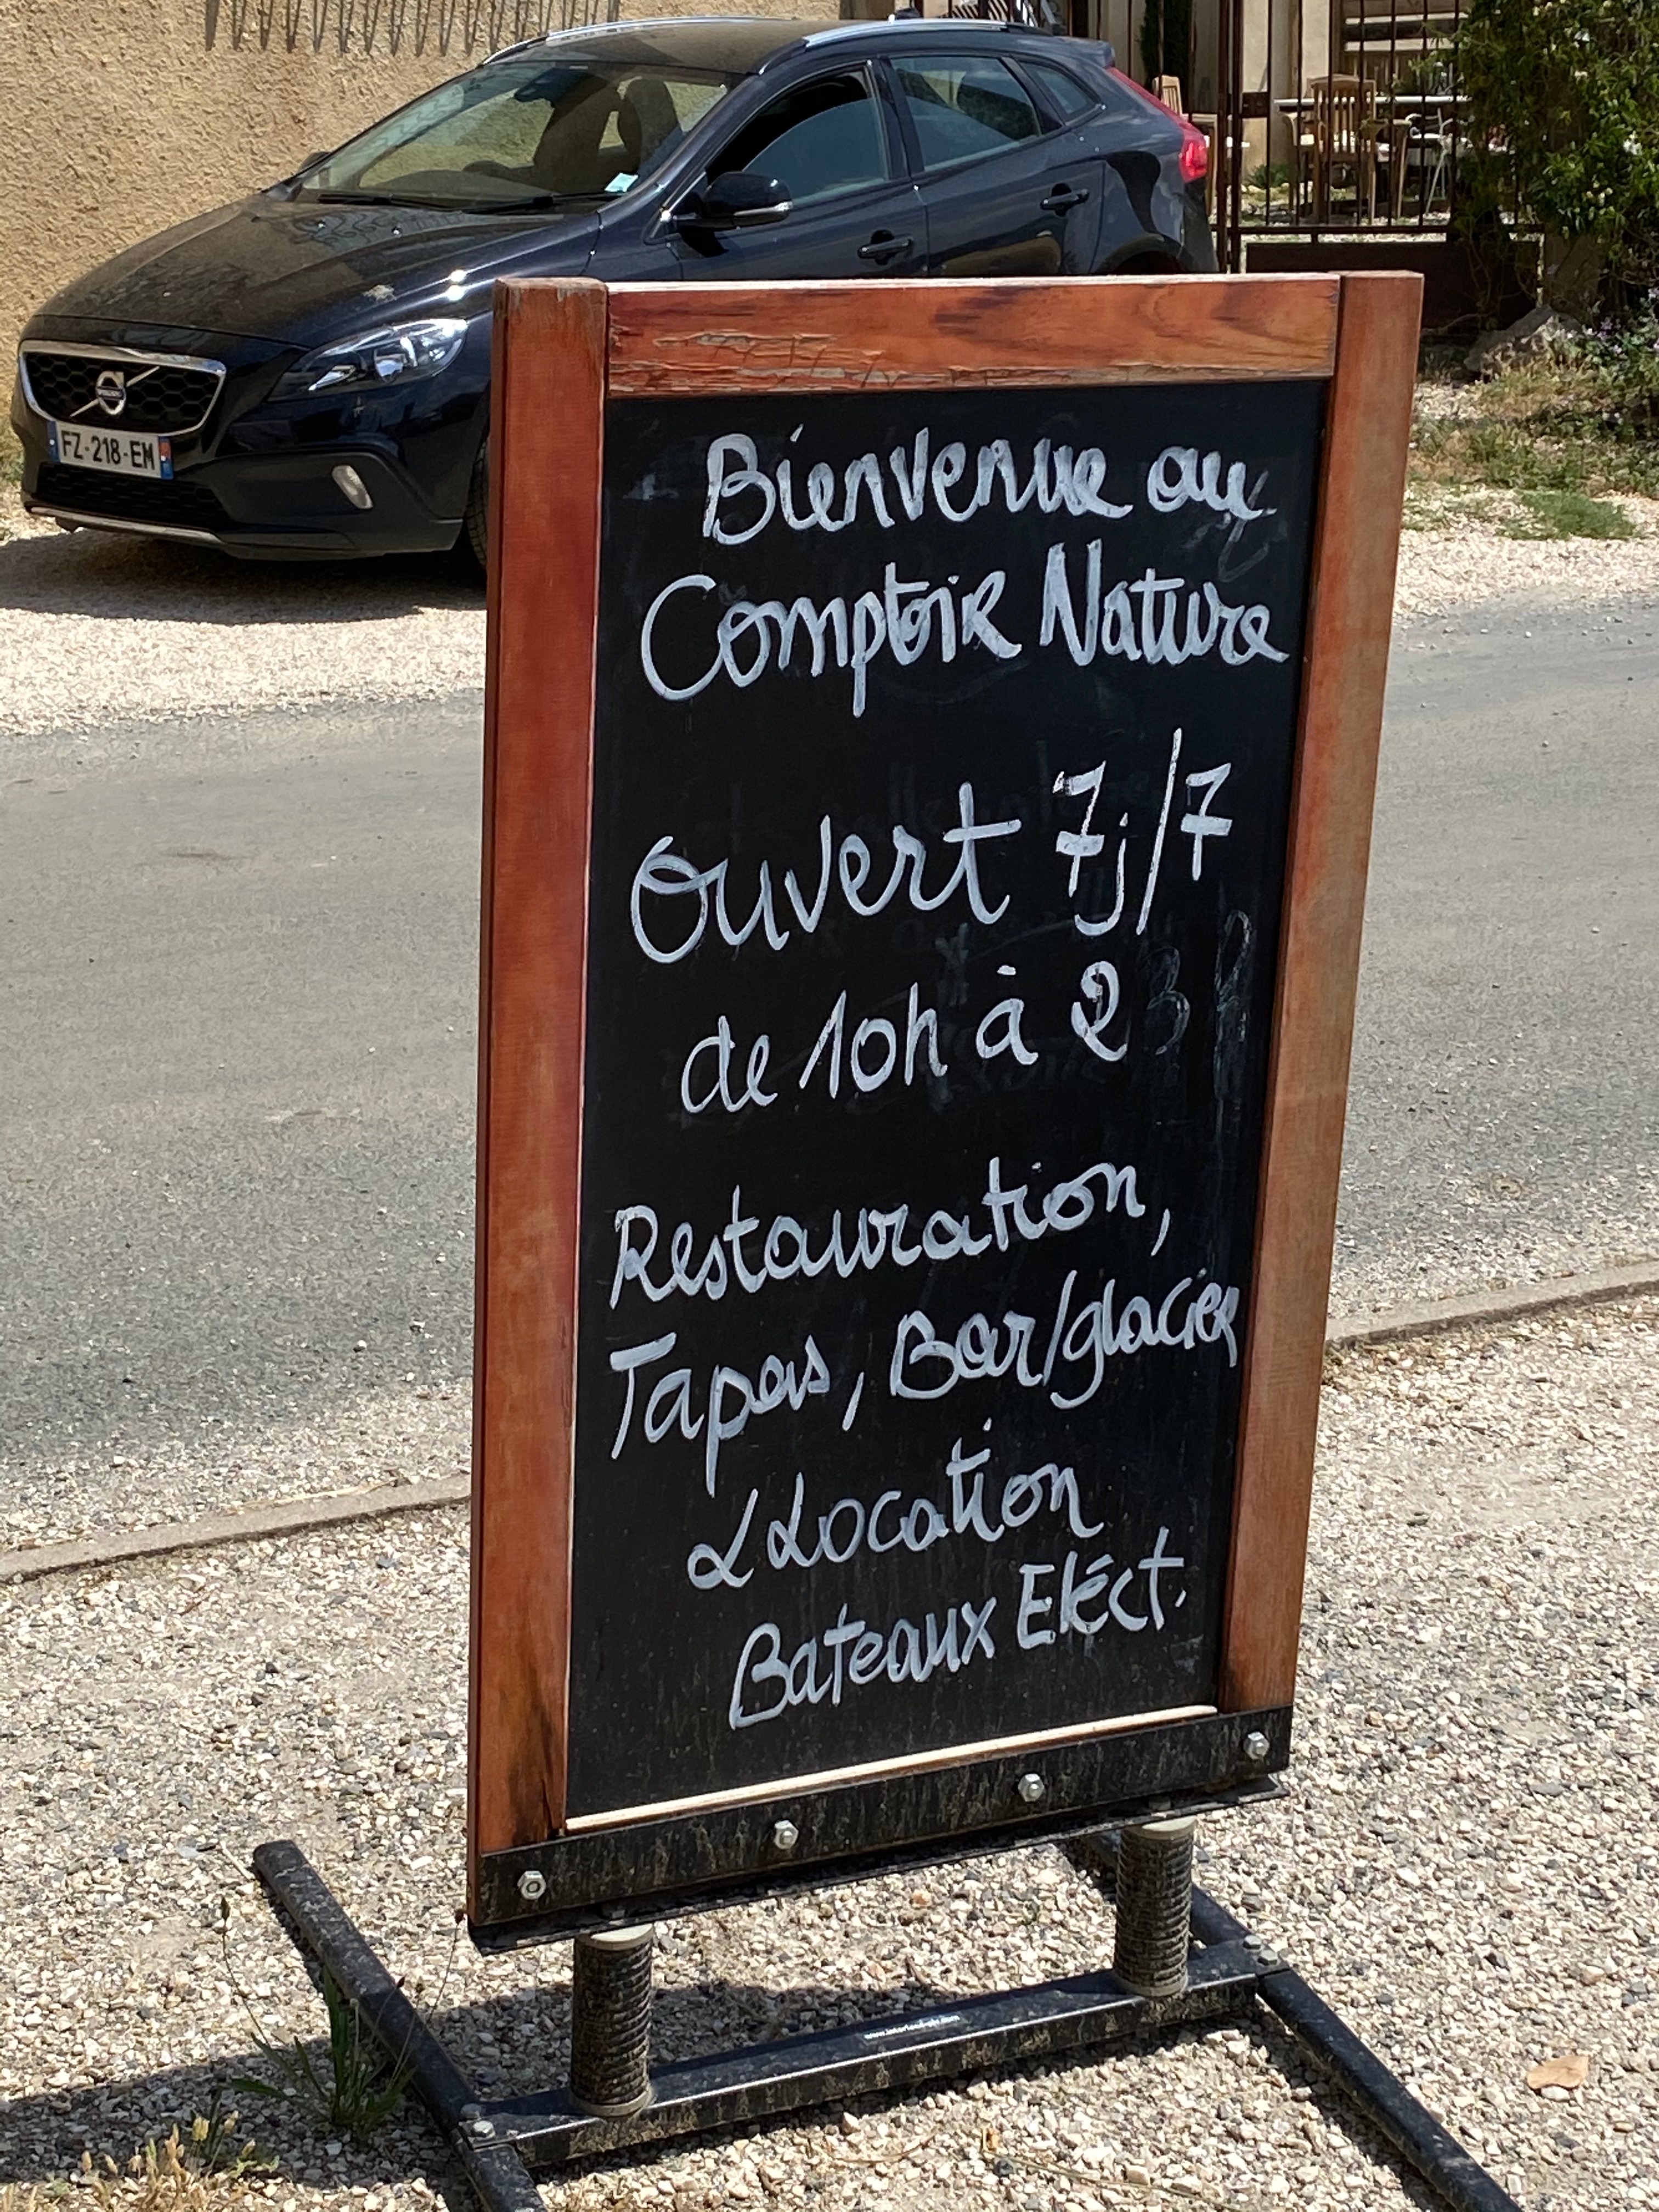 FZ-218-EM
Bienvenue au
Comptoir Nature
Ouvert 7j/7
de 10h à 23h
Restauration,
Tapas, Bar/glacier
& Location
Bateaux Eléct.